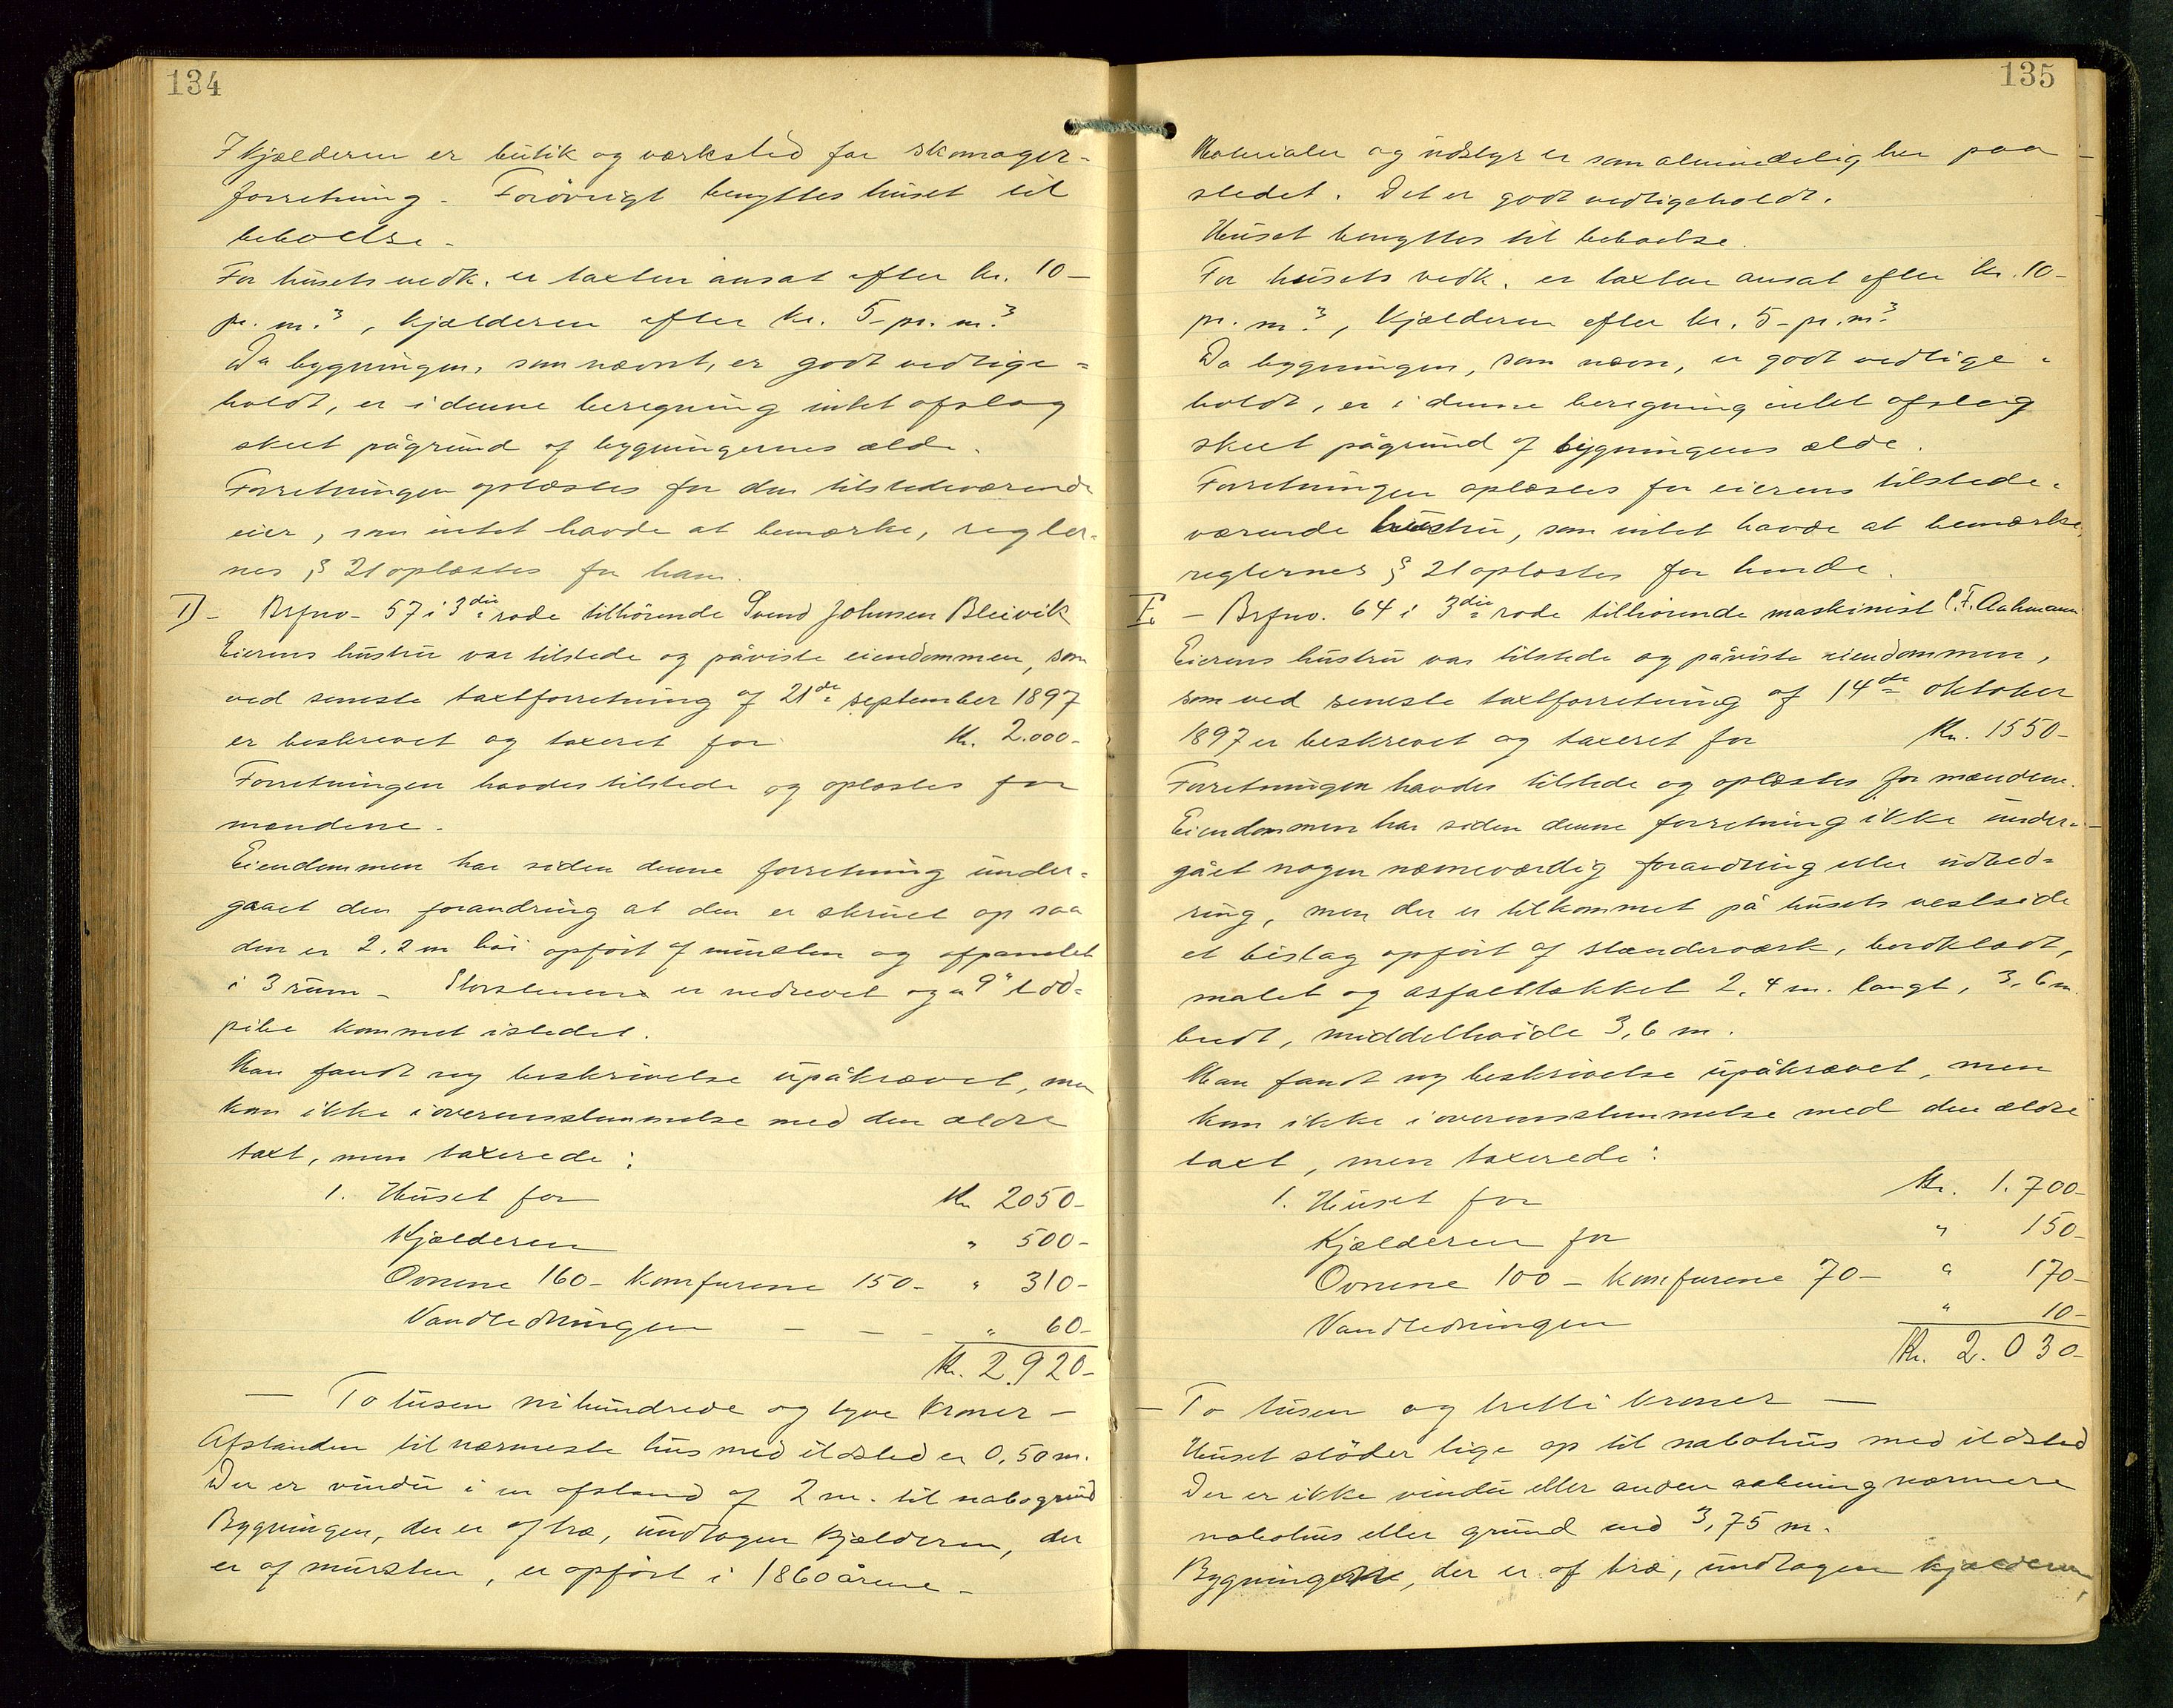 134
I kjælderen er butik og værksted for skomager-
forretning. Forøvrigt benyttes huset til
beboelse.
For husets vedk. er taxten ansat efter kr. 10-
pr. m.³, kjælderen efter kr. 5- pr. m.³
Da bygningen, som nævnt, er godt vedlige=
holdt, er i denne beregning intet afslag
skeet pågrund af bygningernes ælde.
Forretningen oplæstes for den tilstedeværende
eier, som intet havde at bemærke, regler=
nes § 21 oplæstes for ham.
D - Brfno- 57 i 3die rode tilhörende Svend Johnsen Bleivik
Eierens hustru var tilstede og påviste eiendommen, som
ved seneste taxtforretning af 21de september 1897
er beskrevet og taxeret for kr. 2.000-
Forretningen havdes tilstede og oplæstes for
mændene.
Eiendommen har siden denne forretning under=
gaaet den forandring at den er skruet op saa
den er 2,2 m höi opfört af mursten og afpanelet
i 3 rum - Skorstenen er nedrevet og en 9" lod=
pibe kommet istedet.
Man fandt ny beskrivelse upåkrævet, men
kan ikke i overensstemmelse med den ældre
taxt, men taxerede:
1. Huset for Kr 2050-
Kjælderen " 500-
Ovnene 160- Komfurene 150- " 310-
Vandledningen - - - " 60-
Kr. 2.920-
- To tusen nihundrede og tyve kroner -
Afstanden til nærmeste hus med ildsted er 0,50 m.
Der er vindu i en afstand af 2 m. til nabogrund
Bygningen, der er af træ, undtagen kjælderen, der
er af mursten, er opfört i 1860 årene -
135
Materialer og udstyr er som almindelig her paa
stedet. Det er godt vedligeholdt.
Huset benyttes til beboelse.
For husets vedk. er taxten ansat efter kr. 10-
pr. m.³, Kjælderen efter kr. 5- pr. m.³
Da bygningen, som nævn, er godt vedlige=
holdt, er i denne beregning intet afslag
skeet pågrund af bygningens ælde.
Forretningen oplæstes for eierens tilstede=
værende hustru, som intet havde at bemærke,
reglernes § 21 oplæstes for hende.
E. - Brfno. 64 i 3die rode tilhörende maskinist C. F. Aahmann
Eierens hustru var tilstede og påviste eiendommen,
som ved seneste taxtforretning af 14de oktober
1897 er beskrevet og taxeret for Kr. 1550-
Forretningen havdes tilstede og oplæstes for mændene.
Eiendommen har siden denne forretning ikke under=
gået nogen nævneværdig forandring eller udbed=
ring, men der er tilkommet på husets vestside
et bislag opfört af stænderværk, bordklædt,
malet og asfalttækket 2,4 m. langt, 3,6 m.
bredt, middelhöide 3,6 m.
Man fandt ny beskrivelse upåkrævet, men
kan ikke i overensstemmelse med den ældre
taxt, men taxerede:
1. Huset for Kr. 1.700-
Kjælderen for " 150-
Ovnene 100- Komfurene 70- " 170-
Vandledningen " 10-
Kr. 2.030-
- To tusen og tretti kroner -
Huset stöder lige op til nabohus med ildsted
Der er ikke vindu eller anden aabning nærmere
nabohus eller grund end 3,75 m.
Bygningene, der er af træ, undtagen kjælderen,